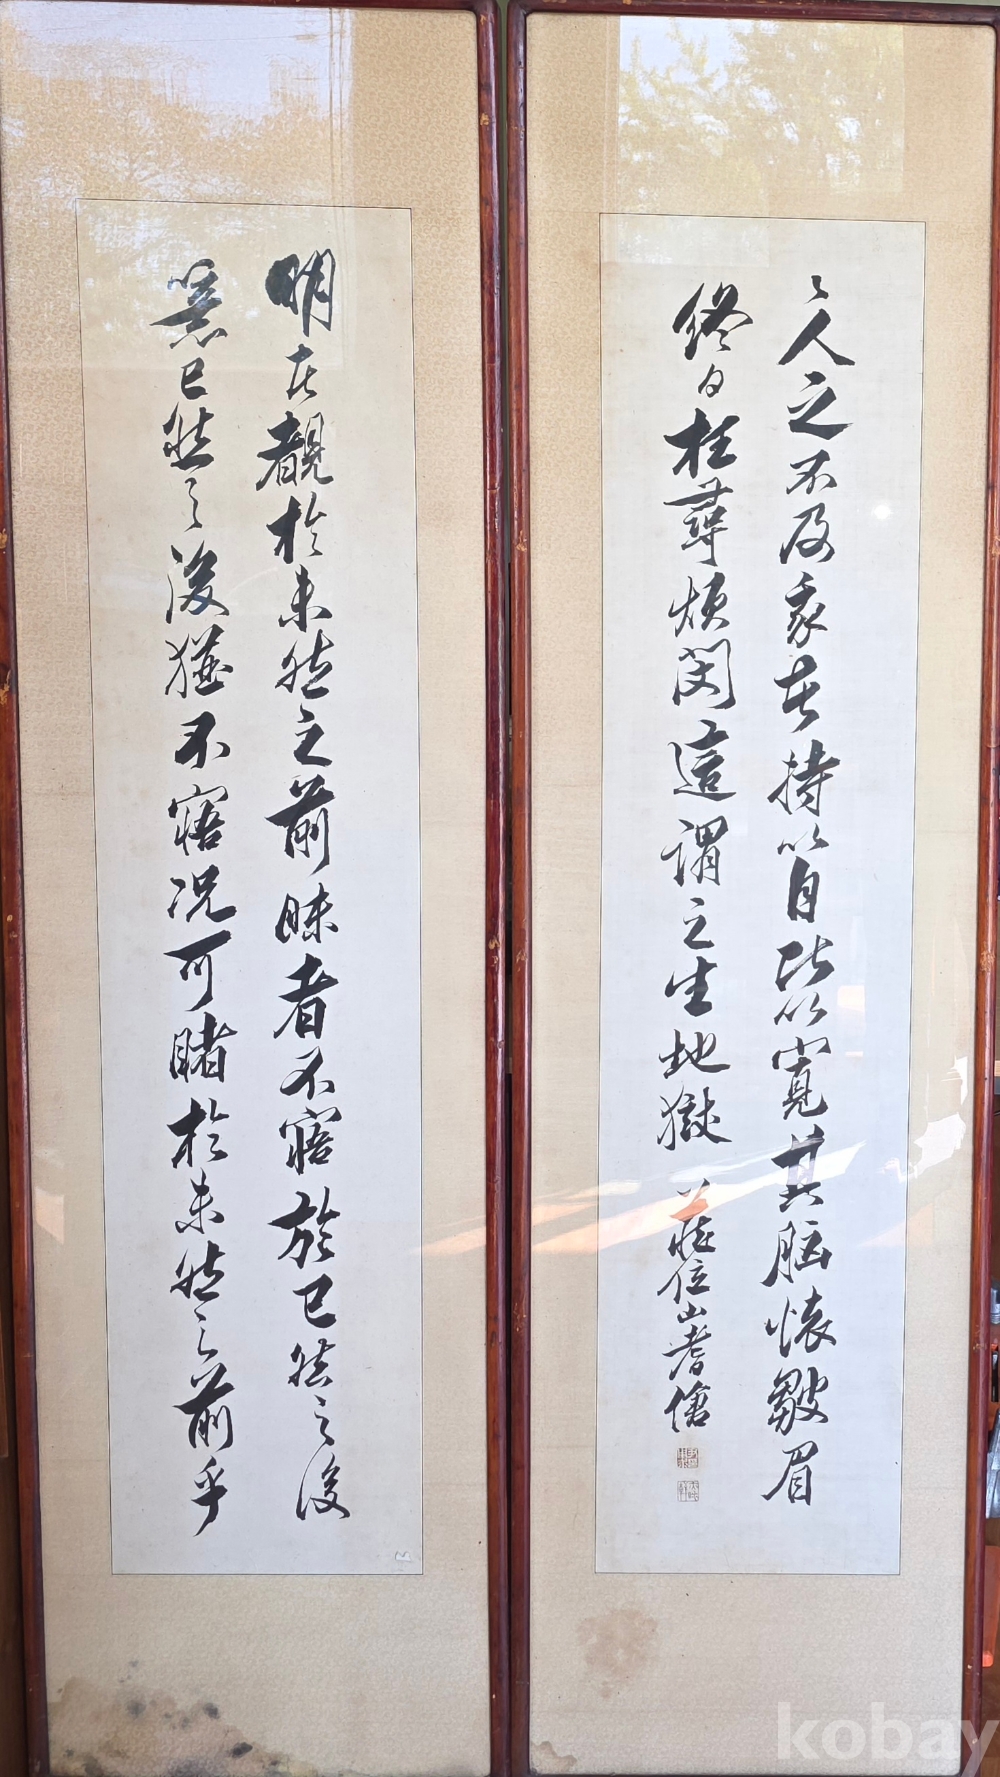 明在覩於未然之前昧者不寤於已然之後
已然之後猶不寤況可睹於未然之前乎
人之不及我者持以自比以寬其腦懷皺眉
終日枉尋煩悶這謂之生地獄
山耆
kobay